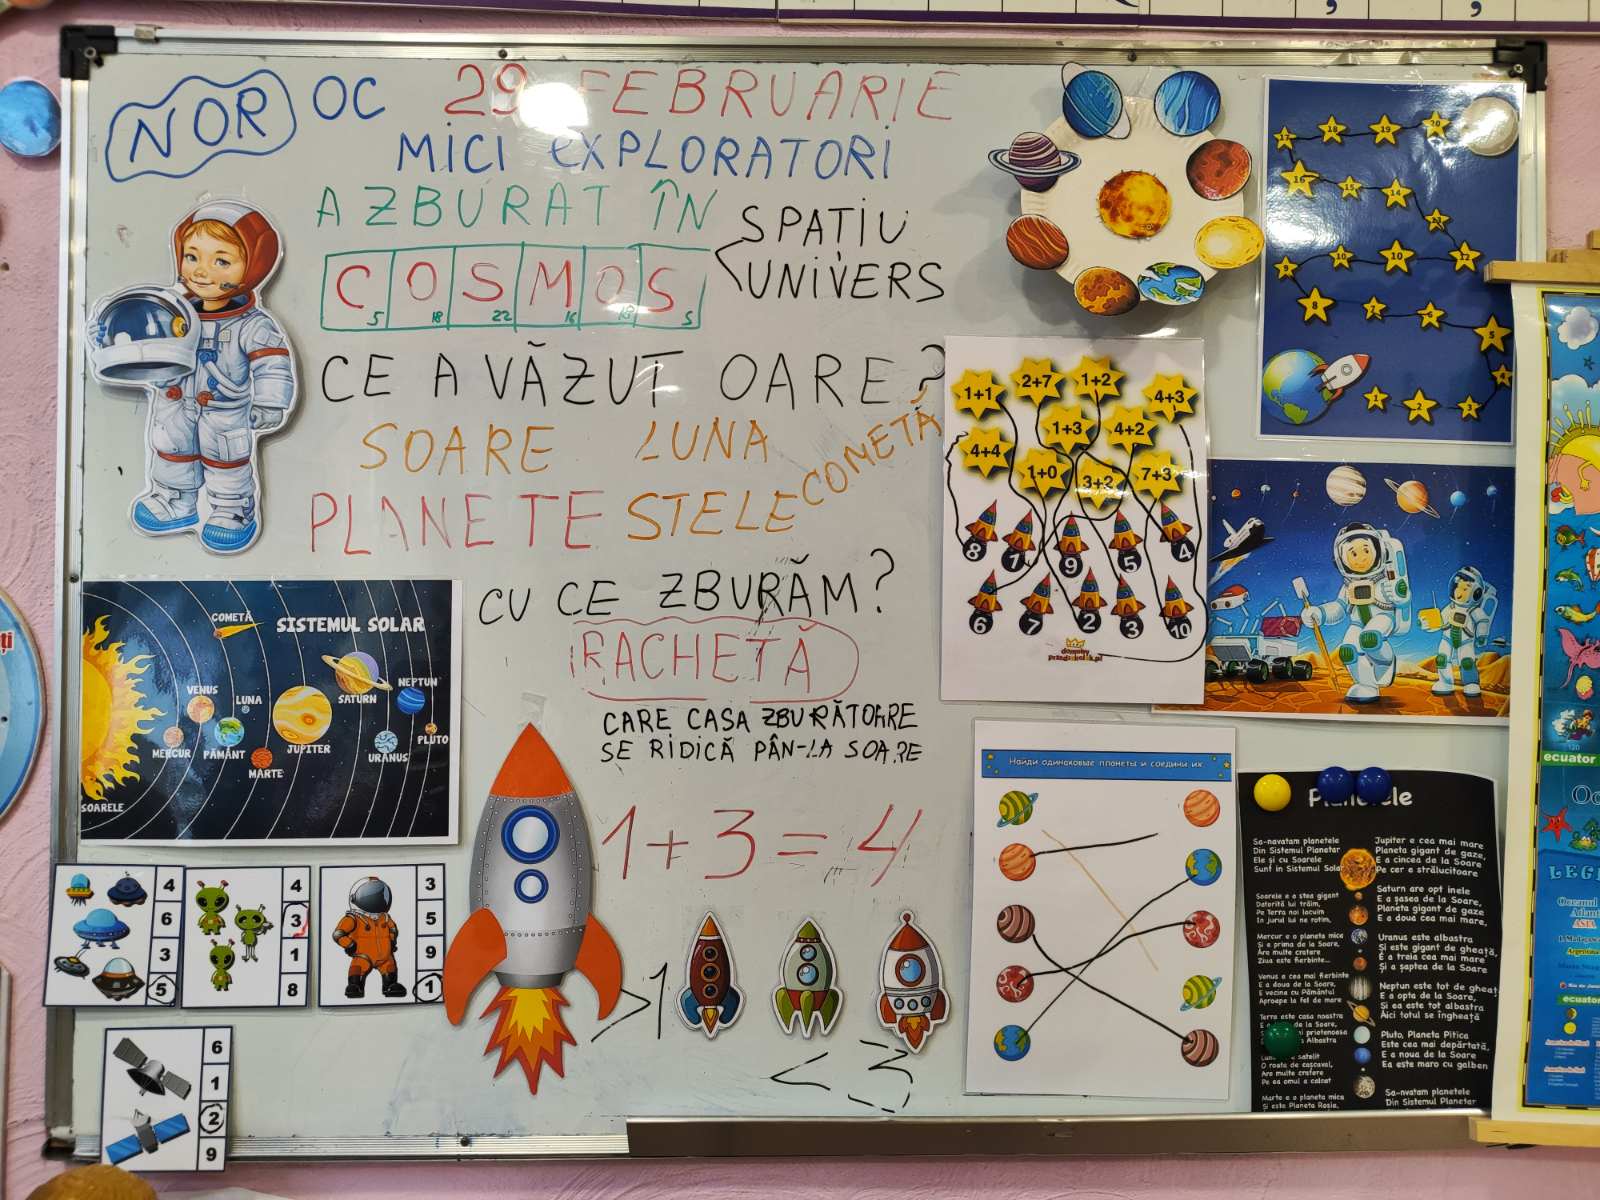 NOR OC 29 FEBRUARIE
MICI EXPLORATORI
A ZBURAT ÎN
COSMOS
5 18 22 16 18 5
SPAȚIU
UNIVERS
CE A VĂZUT OARE?
SOARE LUNA
COMETĂ
PLANETE STELE
CU CE ZBURĂM?
RACHETĂ
CARE CASA ZBURĂTOARE
SE RIDICĂ PÂN-LA SOARE
1+3=4
>1
<3
COMETĂ
SISTEMUL SOLAR
VENUS
LUNA
SATURN
NEPTUN
MERCUR
PĂMÂNT
MARTE
JUPITER
URANUS
PLUTO
SOARELE
4
6
3
5
4
3
1
8
3
5
9
1
6
1
2
9
1+1 2+7 1+2 4+3
1+3 4+2
4+4 1+0 3+2 7+3
8 1 9 5 4
6 7 2 3 10
17 18 19 20
16 15 14
13
9 10 10 12
8 7 6 5
4
1 2 3
Найди одинаковые планеты и соедини их
Planetele
Sa-navatam planetele
Din Sistemul Planetar
Ele și cu Soarele
Sunt in Sistemul Solar
Soarele e o stea gigant
Datorită lui trăim,
Pe Terra noi locuim
In jurul lui ne rotim,
Mercur e o planeta mica
Și e prima de la Soare,
Are multe cratere
Ziua este fierbinte...
Venus a cea mai fierbinte
E a doua de la Soare,
E vecina cu Pământul
Aproape la fel de mare
Terra este casa noastra
E de la Soare,
prietenoasa
Albastra
satelit
O roata de cascaval,
Are multe cratere
Pe ea omul a calcat
Marte e o planeta mica
Și este Planeta Roșie,
Jupiter e cea mai mare
Planeta gigant de gaze,
E a cincea de la Soare
Pe cer e strălucitoare
Saturn are opt inele
E a șasea de la Soare,
Planeta gigant de gaze
E a doua cea mai mare,
Uranus este albastra
Și este gigant de gheață,
E a treia cea mai mare
Și a șaptea de la Soare
Neptun este tot de gheaț
E a opta de la Soare,
Si ea este tot albastra
Aici totul se îngheață
Pluto, Planeta Pitica
Este cea mai depărtată,
E a noua de la Soare
Ea este maro cu galben
Sa-nvatam planetele
Din Sistemul Planetar
ecuator
Oc
LEGE
Oceanul
ASIA
Argentina
ecuator
ți